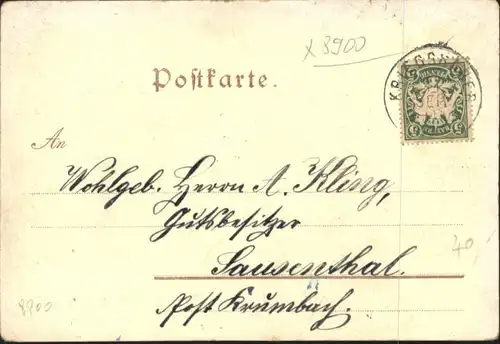 x 8900
Postkarte.
An
Wohlgeb. Herrn A. Kling,
Gutsbesitzer
Sausenthal.
Post Krumbach.
40
8900